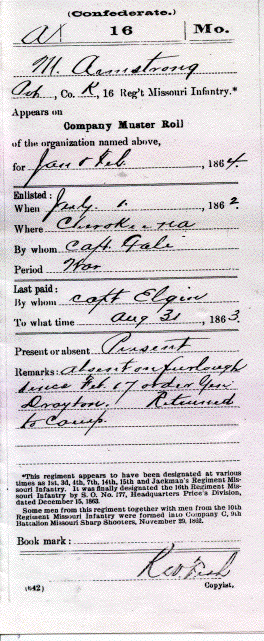 (Confederate.)
A 16 Mo.
M. Armstrong
Pvt, Co. K, 16 Reg't Missouri Infantry.*
Appears on
Company Muster Roll
of the organization named above,
for Jan & Feb, 1864.
Enlisted:
When July 1, 1862
Where
By whom Capt. Gale
Period War
Last paid:
By whom Capt Elgin
To what time Aug 31, 1863.
Present or absent Present
Remarks: Absent on furlough
since Feb. 17 order Gen
Drayton. Returned
to camp.
*This regiment appears to have been designated at various
times as 1st, 3d, 4th, 7th, 14th, 15th and Jackman's Regiment Mis-
souri Infantry. It was finally designated the 16th Regiment Mis-
souri Infantry by S. O. No. 177, Headquarters Price's Division,
dated December 15, 1863.
Some men from this regiment together with men from the 10th
Regiment Missouri Infantry were formed into Company C, 9th
Battalion Missouri Sharp Shooters, November 29, 1862.
Book mark:
(642) Copyist.